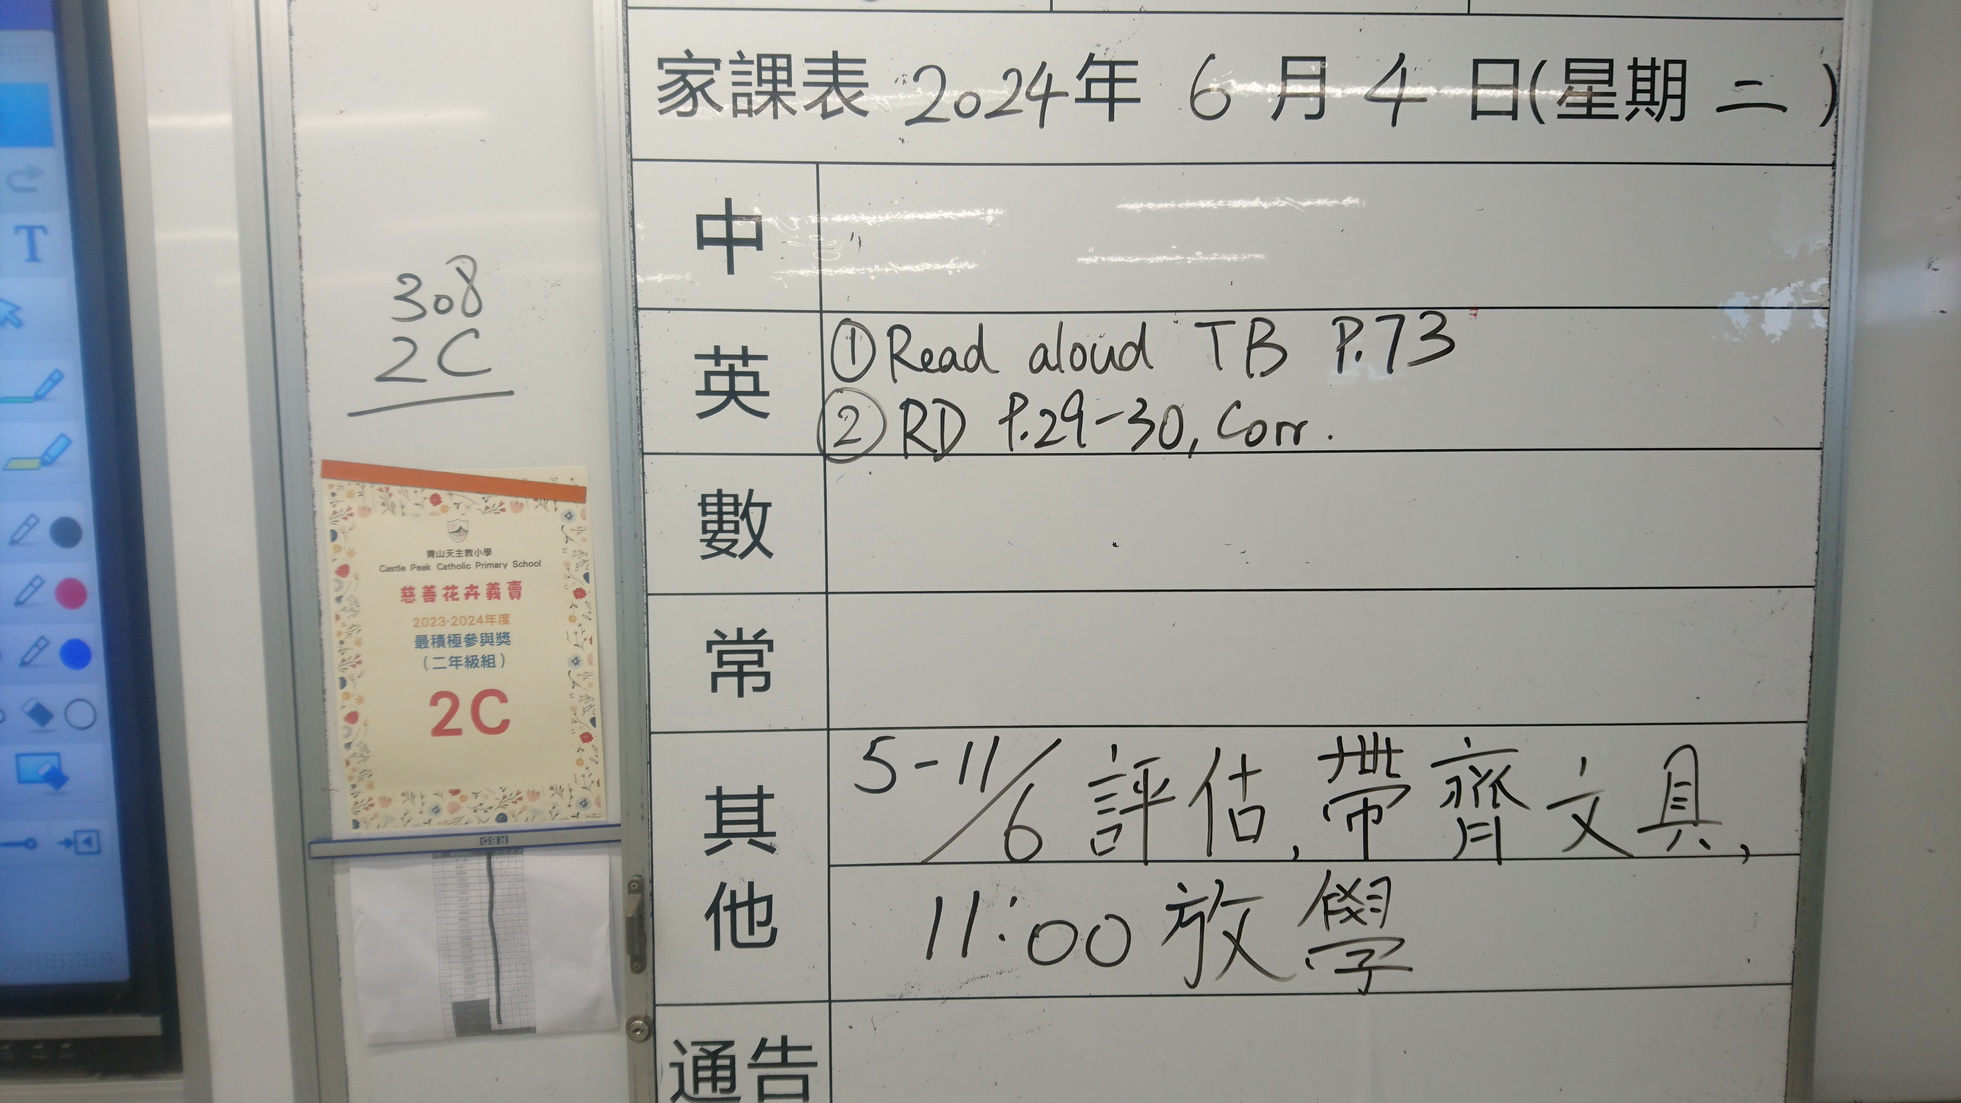 家課表 2024年 6 月 4 日(星期 二 )
中
英
①Read aloud TB P.73
②RD P.29-30, Corr.
數
常
其他
5-11/6 評估,帶齊文具,
11:00放學
通告
308
2C
青山天主教小學
Castle Peak Catholic Primary School
慈善花卉義賣
2023-2024年度
最積極參與獎
(二年級組)
2C
T